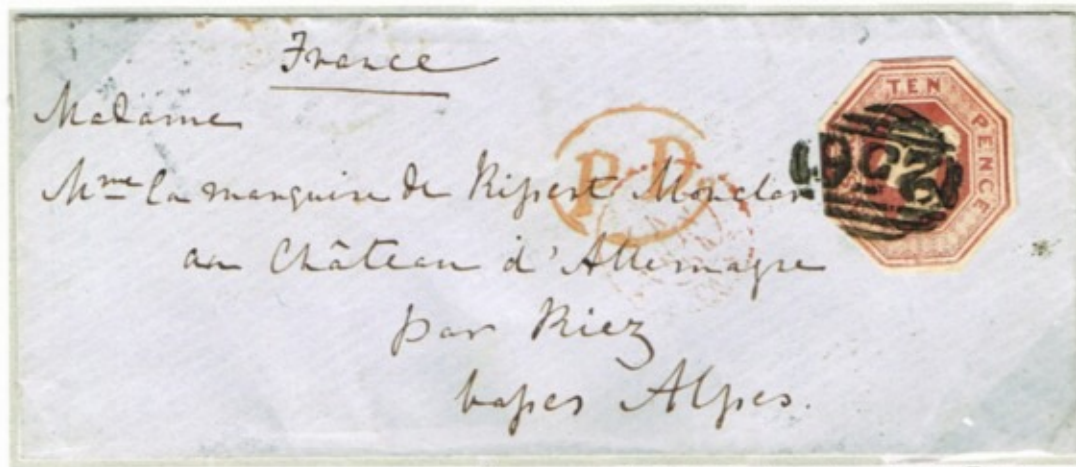 France
Madame
Mme la marquise de Ripert Monclar
au Château d'Allemagne
par Riez
basses Alpes.
P.D.
TEN PENCE